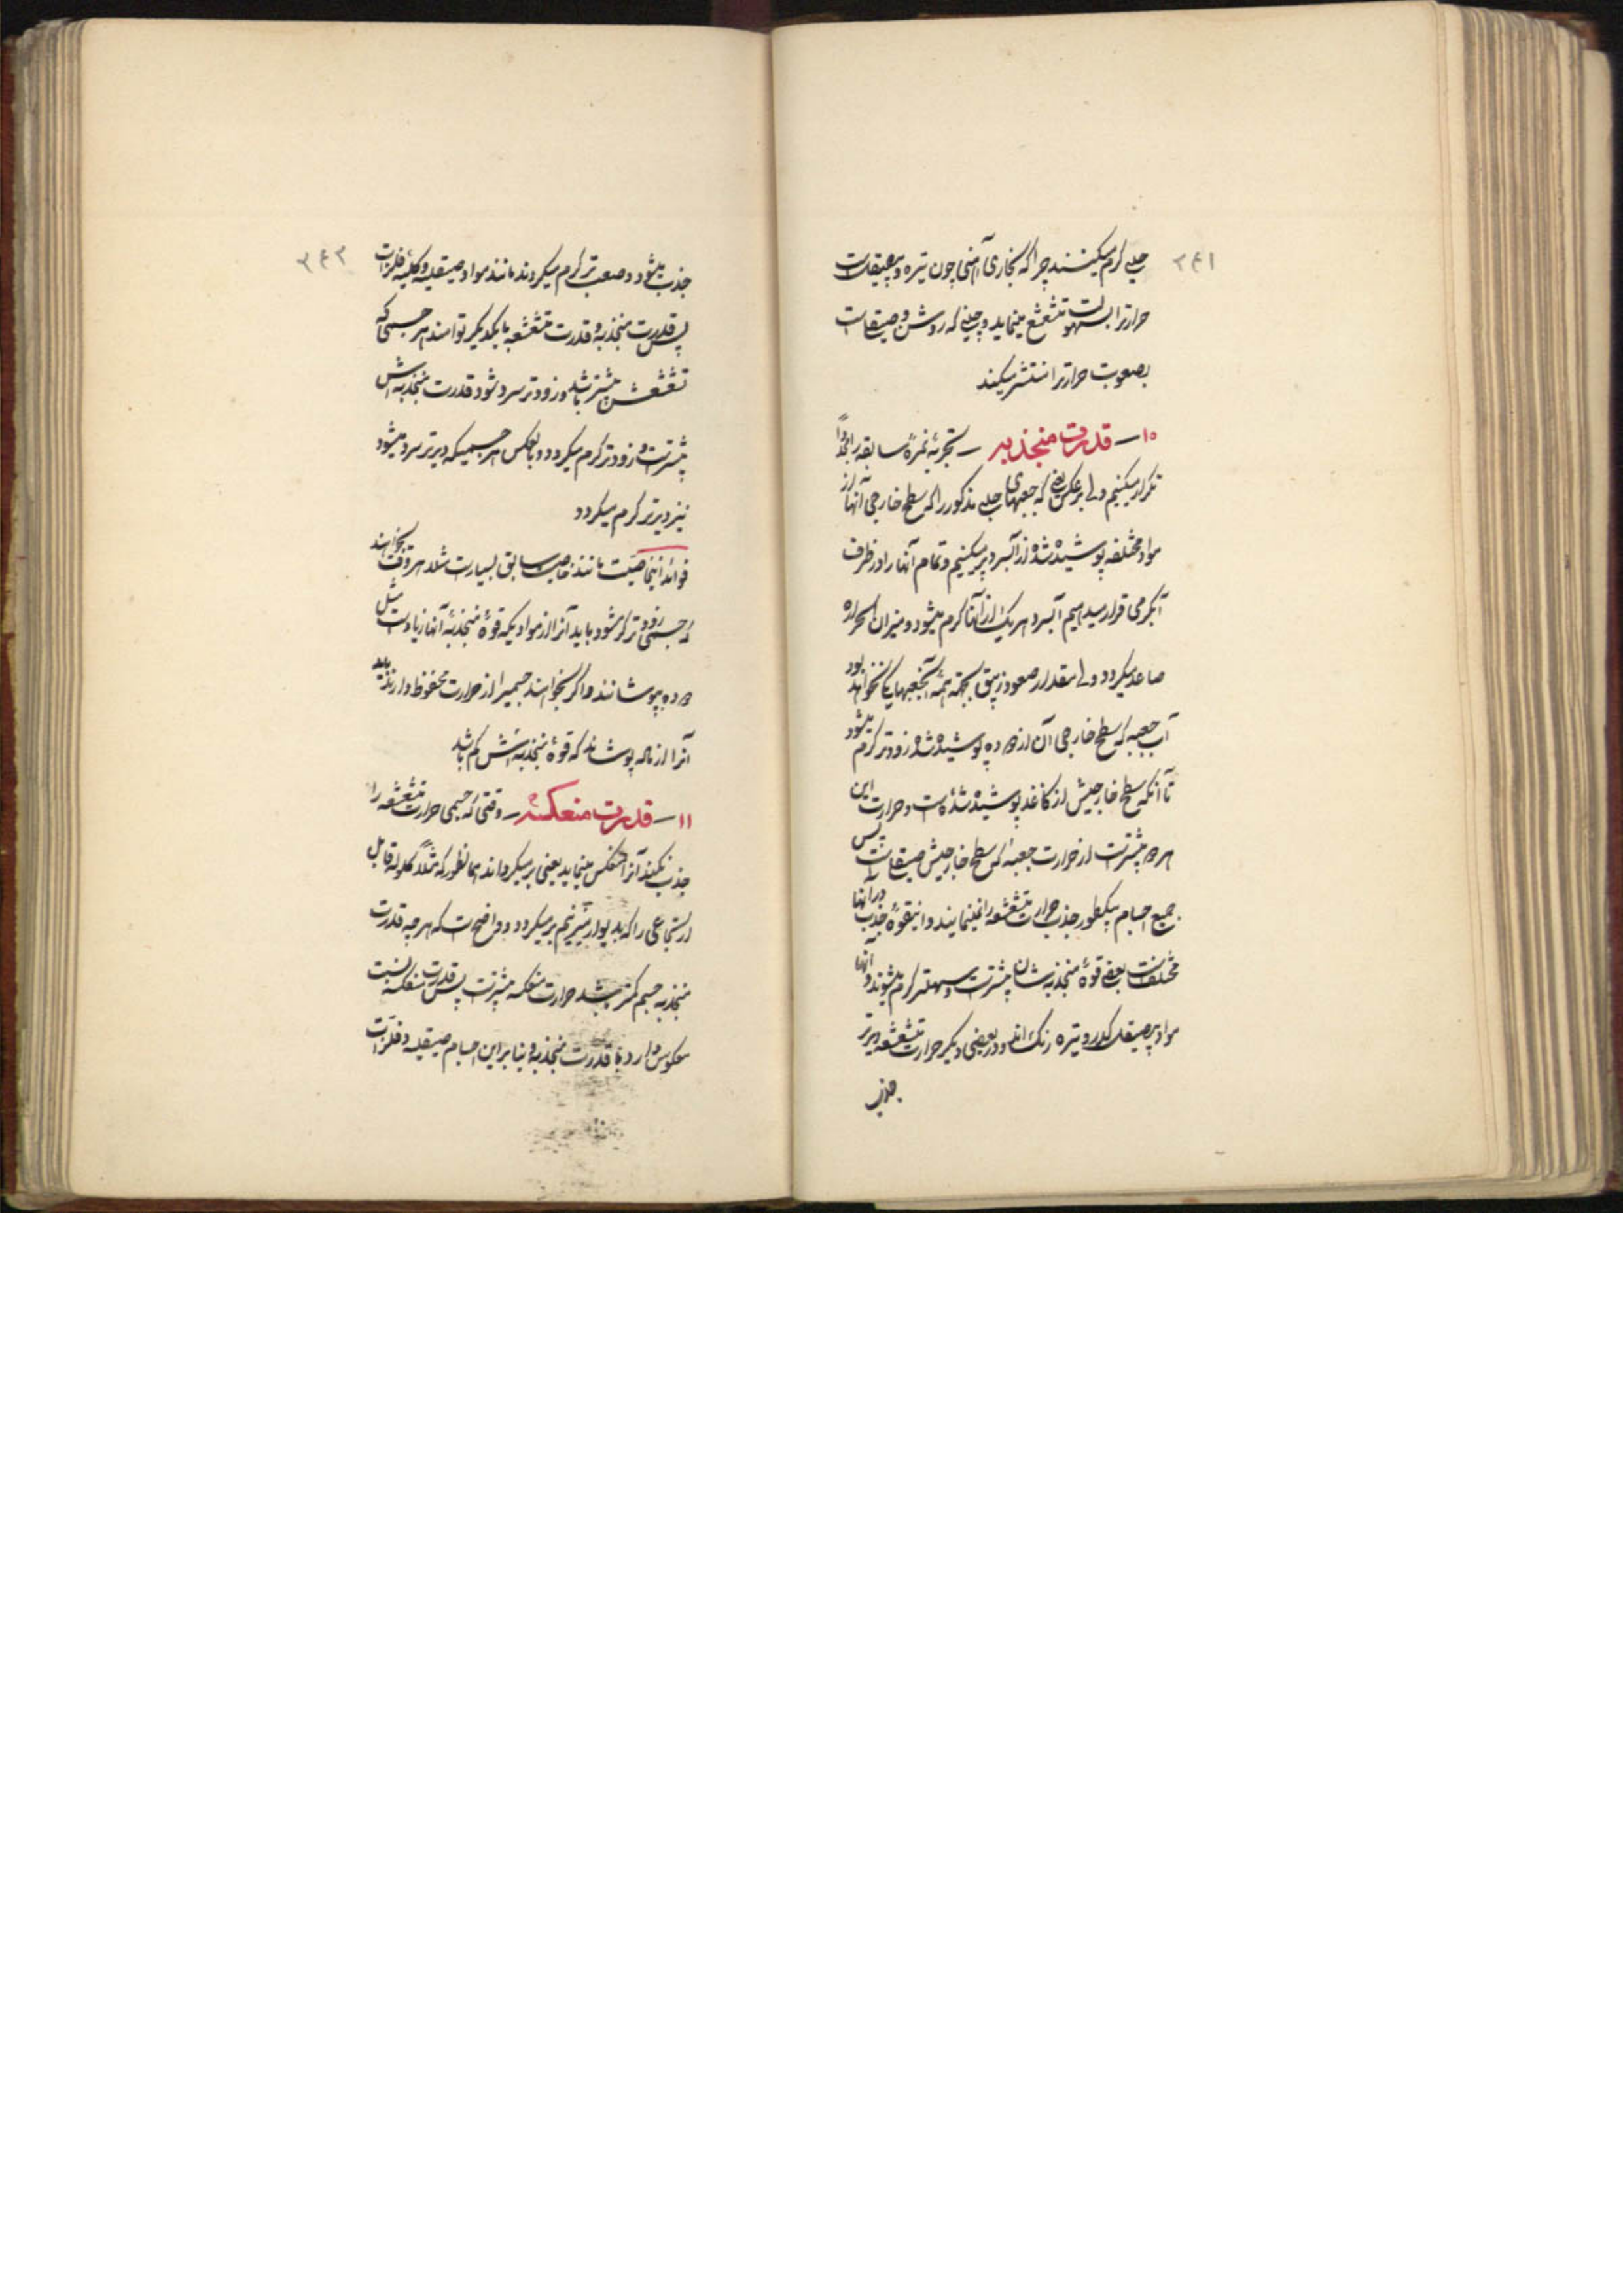 ۲۴۱
حلبی گرم میکنند چرا که بخاری آهنی چون تیره و بیصیقل است
حرارترا بسهولت متشعشع مینماید و حلبی که روشن و صیقل است
بصعوبت حرارترا منتشر میکند
۱۰ – قدرت منجذبه – تجربهٔ نمرهٔ سابقه را مجدداً
تکرار میکنیم ولی برعکس یعنی که جعبهای حلبی مذکور را که سطح خارجی آنها از
مواد مختلفه پوشیده شده از آب سرد پر میکنیم و تمام آنها را در ظرف
آبگرمی قرار میدهیم آب سرد هر یک از آنها گرم میشود و میزان الحراره
صاعد میگردد ولی مقدار صعود زیبق بجهة همهٔ آنجعبها یکسان نخواهد بود
آب جعبه که سطح خارجی آن از دوده پوشیده شده زودتر گرم میشود
تا آنکه سطح خارجیش از کاغذ پوشیده شده است و حرارت این
هر دو بیشتر است از حرارت جعبه که سطح خارجیش صیقل است پس
جمیع اجسام بیکطور جذب حرارت متشعشعه را نمینمایند و اینقوهٔ جذب در آنها
مختلف است بعضی قوهٔ منجذبه شان بیشتر است و سهلتر گرم میشوند و آنها
مواد بیصیقل کدر و تیره رنگ اند و در بعضی دیگر حرارت متشعشعه دیرتر
جذب
۲۴۲
جذب میشود و صعب تر گرم میگردند مانند مواد صیقلیه و کلیهٔ فلزات
پس قدرت منجذبه و قدرت متشعشعه با یکدیگر توامند هر جسمی که
تشعشعش بیشتر باشد و زودتر سرد شود قدرت منجذبه اش
بیشتر است و زودتر گرم میگردد و بالعکس هر جسمیکه دیرتر سرد میشود
نیز دیرتر گرم میگردد
فوائد اینخاصیت مانند خاصیت سابق بسیار است مثلا هر وقت بخواهند
که جسمی زودتر گرم شود باید آنرا از موادیکه قوهٔ منجذبهٔ آنها زیاد است مثل
دوده بپوشانند و اگر بخواهند جسمیرا از حرارت محفوظ دارند باید
آنرا از ماده پوشانند که قوهٔ منجذبه اش کم باشد
۱۱ – قدرت منعکسه – وقتی که جسمی حرارت متشعشعه را
جذب نکند آنرا منعکس مینماید یعنی بر میگرداند همانطور که مثلاً گلوله قابل
ارتجاعی را که بدیوار میزنیم بر میگردد و واضح است که هر چه قدرت
منجذبه جسم کمتر باشد حرارت منعکسه بیشتر است پس قدرت منعکسه نسبت
معکوس دارد با قدرت منجذبه و بنابراین اجسام صیقلیه و فلزات